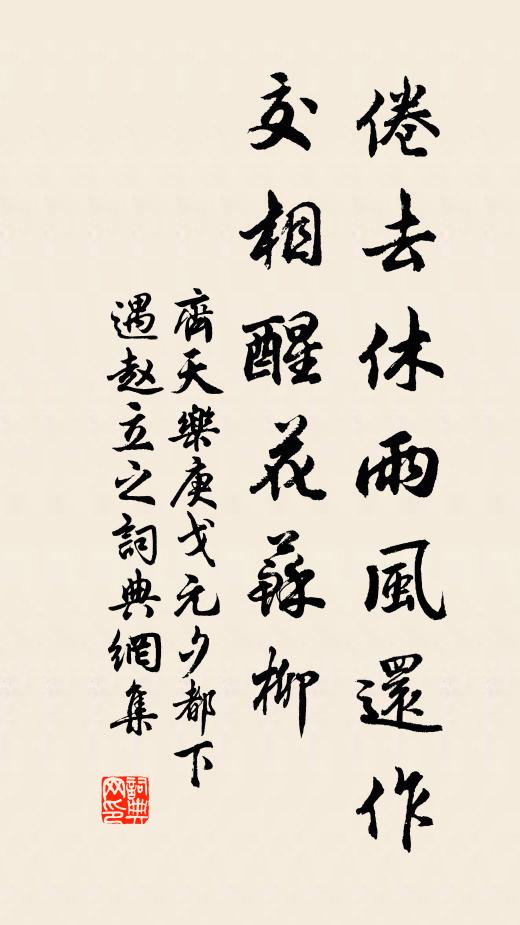 倦去休雨風還作
交相醒花蘇柳
齊天樂庚戈元夕都下
遇趙立之詞典網集
詞典網印